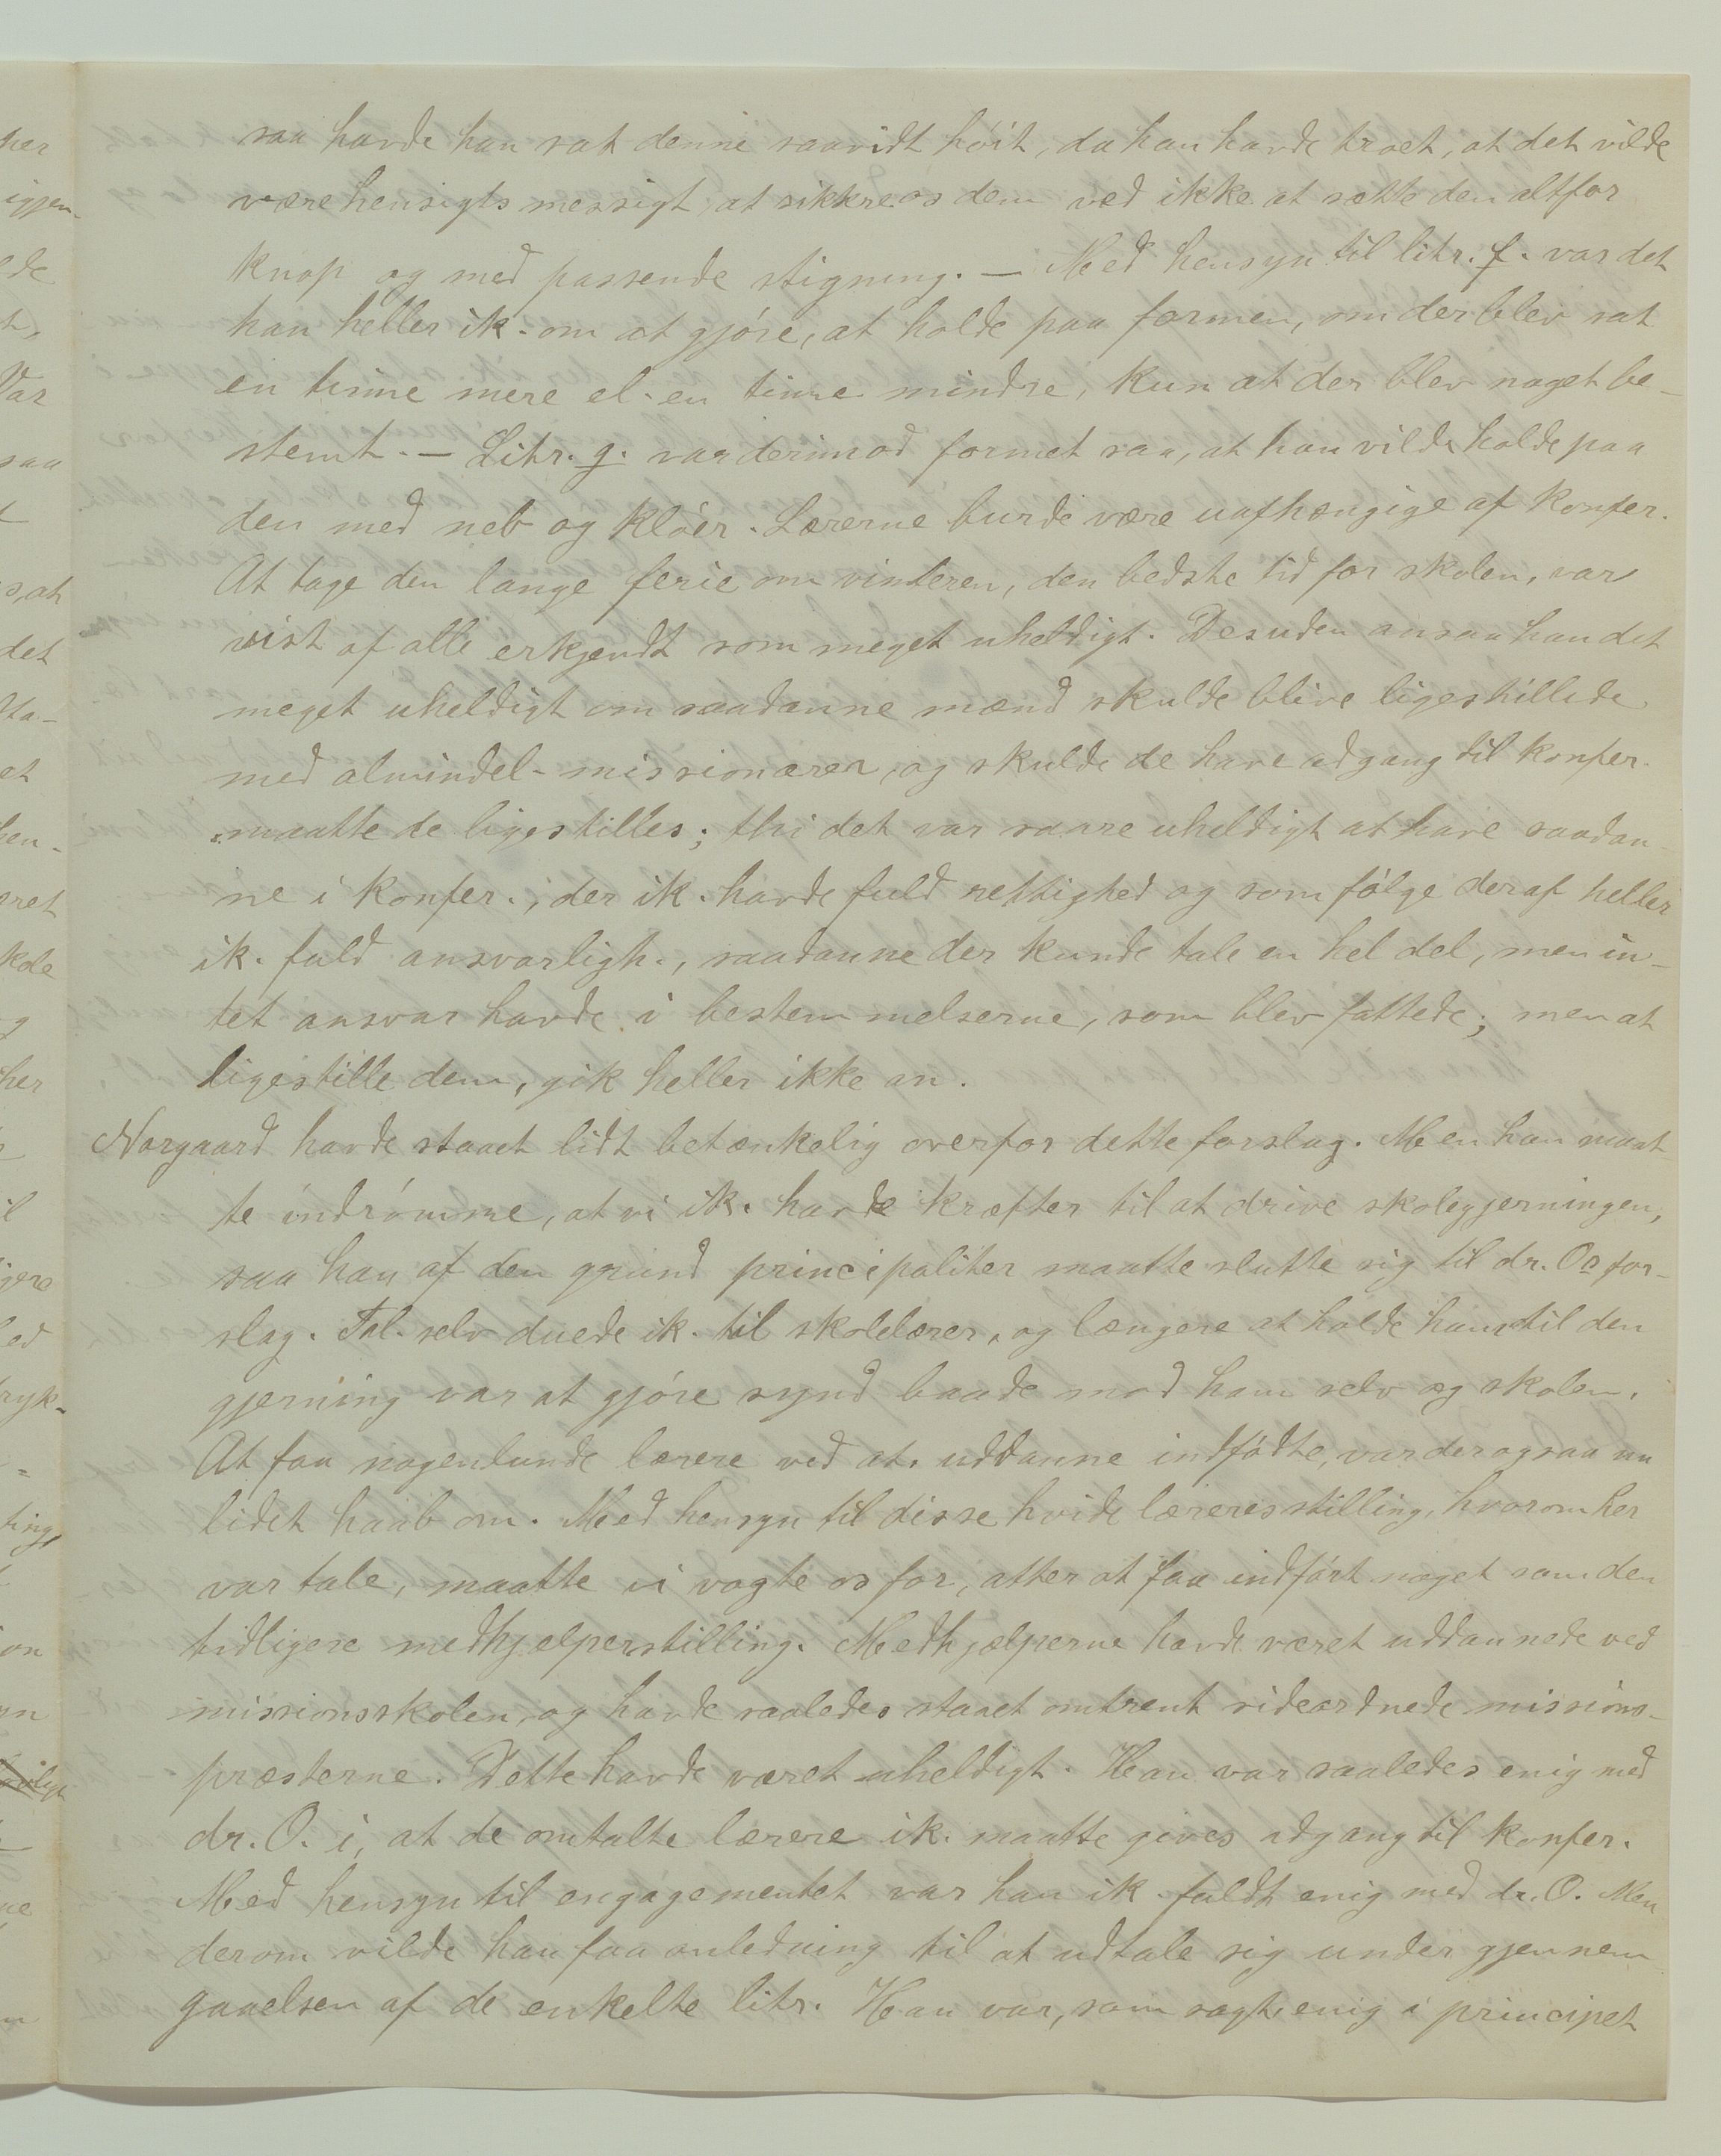 saa havde han sat denne saavidt höit, da han havde troet, at det vilde
være hensigtsmessigt, at sikkre os dem ved ikke at sætte den altfor
knap og med passende stigning. — Med hensyn til litr. f. var det
han heller ik. om at gjöre, at holde paa formen, om der blev sat
en time mere el. en time mindre, kun at der blev noget be-
stemt. — Litr. g. var derimod formet saa, at han vilde holde paa
den med neb og klöer. Lærerne burde være uafhængige af konfer.
At tage den lange ferie om vinteren, den bedste tid for skolen, var
vist af alle erkjendt som meget uheldigt. Desuden ansaa han det
meget uheldigt om saadanne mænd skulde blive ligestillede
med almindel. missionærer, og skulde de have adgang til konfer.
maatte de ligestilles; thi det var saare uheldigt at have saadan-
ne i konfer., der ik. havde fuld rettighed og som fölge deraf heller
ik. fuld ansvarligh., saadanne der kunde tale en hel del, men in-
tet ansvar havde i bestemmelserne, som blev fattede; men at
ligestille dem, gik heller ikke an.
Norgaard havde staaet lidt betænkelig overfor dette forslag. Men han maat
te indrömme, at vi ik. havde kræfter til at drive skolegjerningen,
saa han af den grund principaliter maatte slutte sig til dr. Os for-
slag. Tal. selv duede ik. til skolelærer, og længere at holde ham til den
gjerning var at gjöre synd baade mod ham selv og skolen.
At faa nogenlunde lærere ved at uddanne indfödte, var der ogsaa nu
lidet haab om. Med hensyn til disse hvide læreres stilling, hvorom her
var tale, maatte vi vogte os for, atter at faa indfört noget som den
tidligere medhjælperstilling. Medhjælperne havde været uddannede ved
missionsskolen, og havde saaledes staaet omtrent sideordnede missions-
præsterne. Dette havde været uheldigt. Han var saaledes enig med
dr. O. i, at de omtalte lærere ik. maatte gives adgang til konfer.
Med hensyn til engagementet var han ik. fuldt enig med dr. O. Men
derom vilde han faa anledning til at udtale sig under gjennem
gaaelsen af de enkelte litr. Han var, som sagt, enig i principet